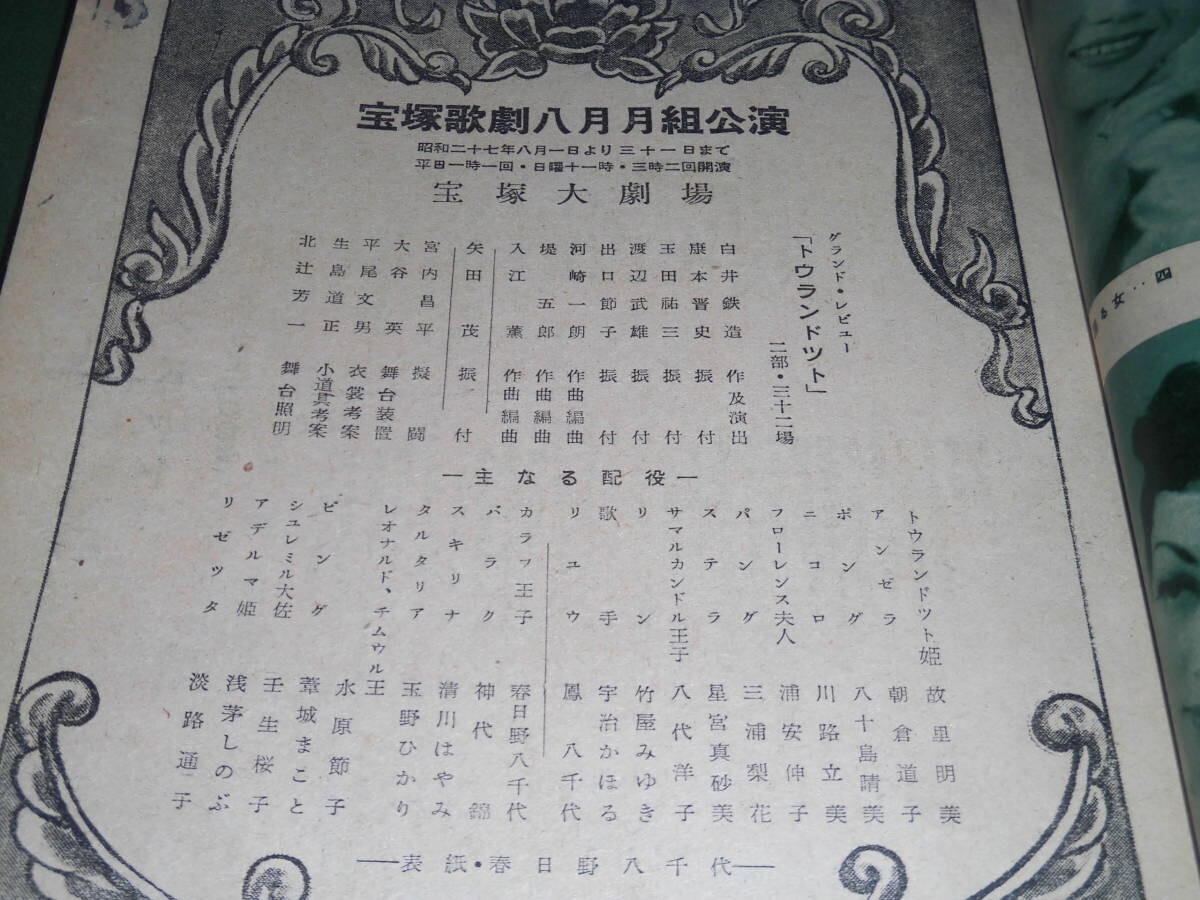 宝塚歌劇八月月組公演
昭和二十七年八月一日より三十一日まで
平日一時一回・日曜十一時・三時二回開演
宝塚大劇場
グランド・レビュー
「トウランドツト」
二部・三十二場
白井鉄造 作及演出
康本晋史 振付
玉田祐三 振付
渡辺武雄 振付
出口節子 振付
河崎一朗 作曲編曲
堤五郎 作曲編曲
入江薫 作曲編曲
矢田茂 振付
宮内昌平 擬闘
大谷英 舞台装置
平尾文男 衣裳考案
生島道正 小道具考案
北辻芳一 舞台照明
―主なる配役―
トウランドツト姫 故里明美
アンゼラ 朝倉道子
ポング 八十島晴美
ニコロ 川路立美
フローレンス夫人 浦安伸子
パング 三浦梨花
ステラ 星宮真砂美
サマルカンドル王子 八代洋子
リン 竹屋みゆき
歌手 宇治かほる
リユウ 鳳八千代
カラフ王子 春日野八千代
バラク 神代錦
スキリナ 清川はやみ
タルタリア 玉野ひかり
レオナルド、チムウル王 水原節子
ピング 葦城まこと
シユレミル大佐 壬生桜子
アデルマ姫 浅茅しのぶ
リゼツタ 淡路通子
―表紙・春日野八千代―
る女…四